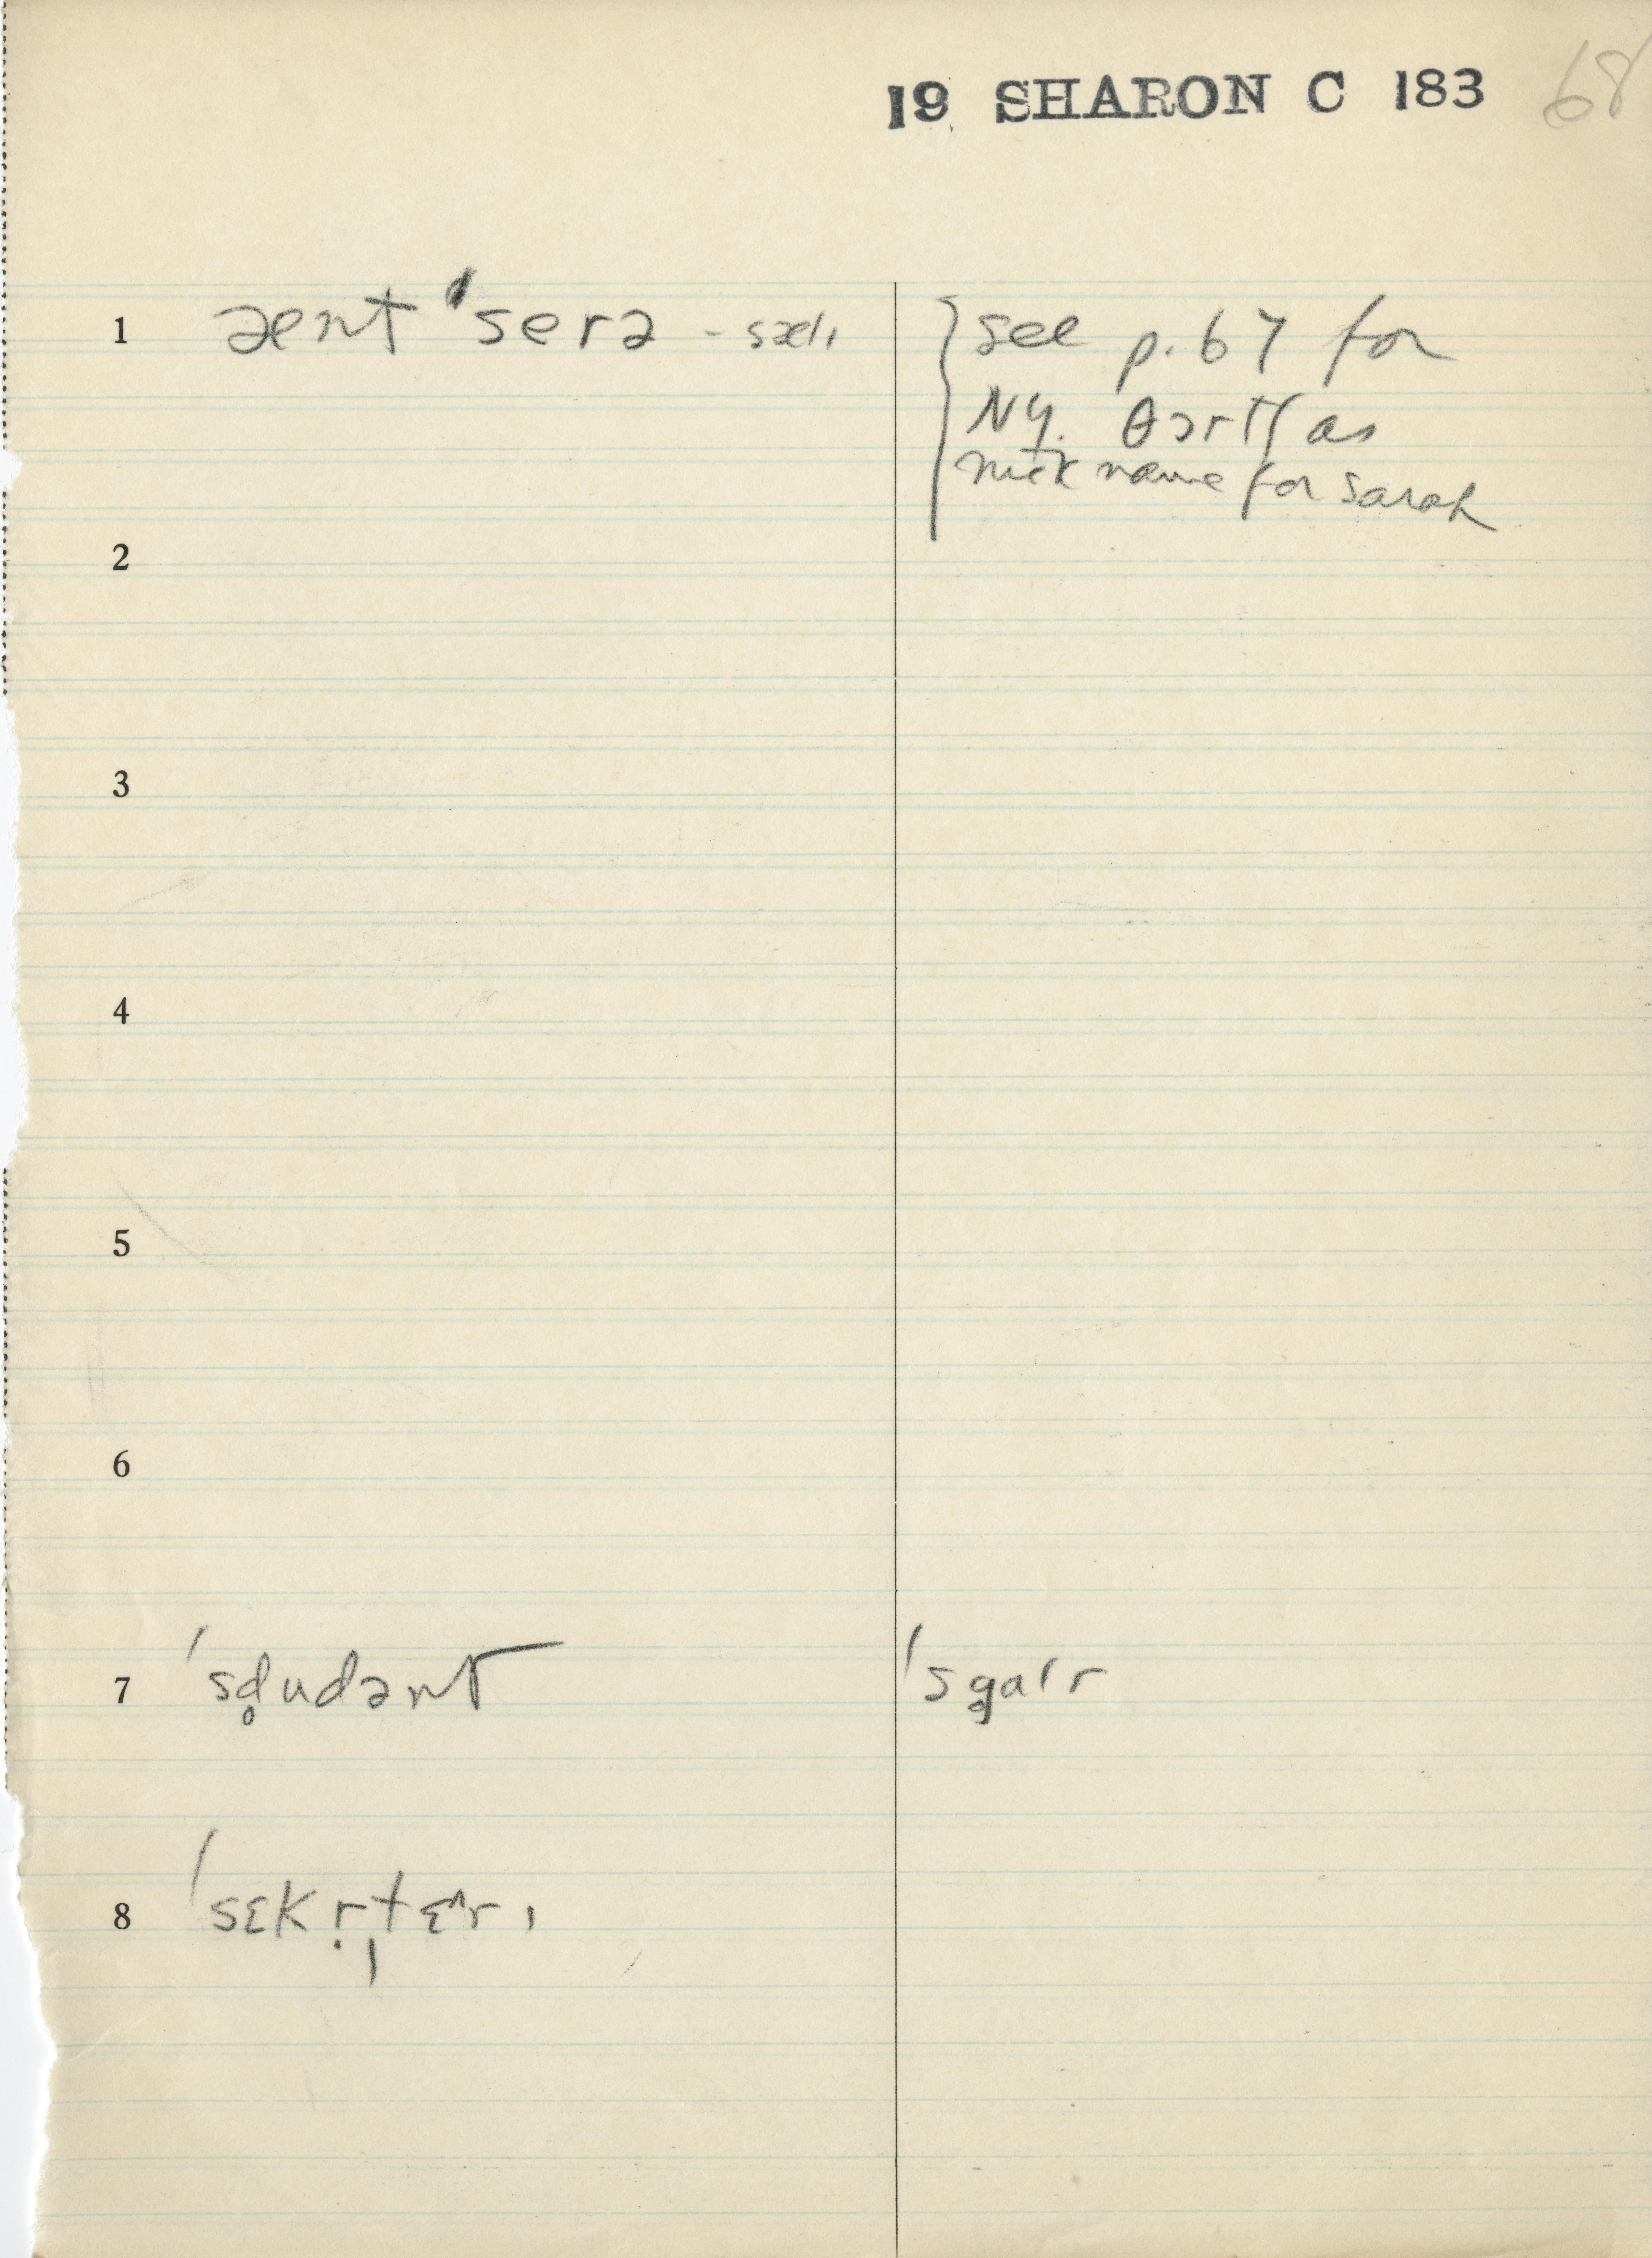 19 SHARON C 183 68
1 ænt ˈserə - sæli
see p. 67 for
NY. as
nickname for Sarah
2
3
4
5
6
7 ˈsd̥udənt ˈsg̥alr
8